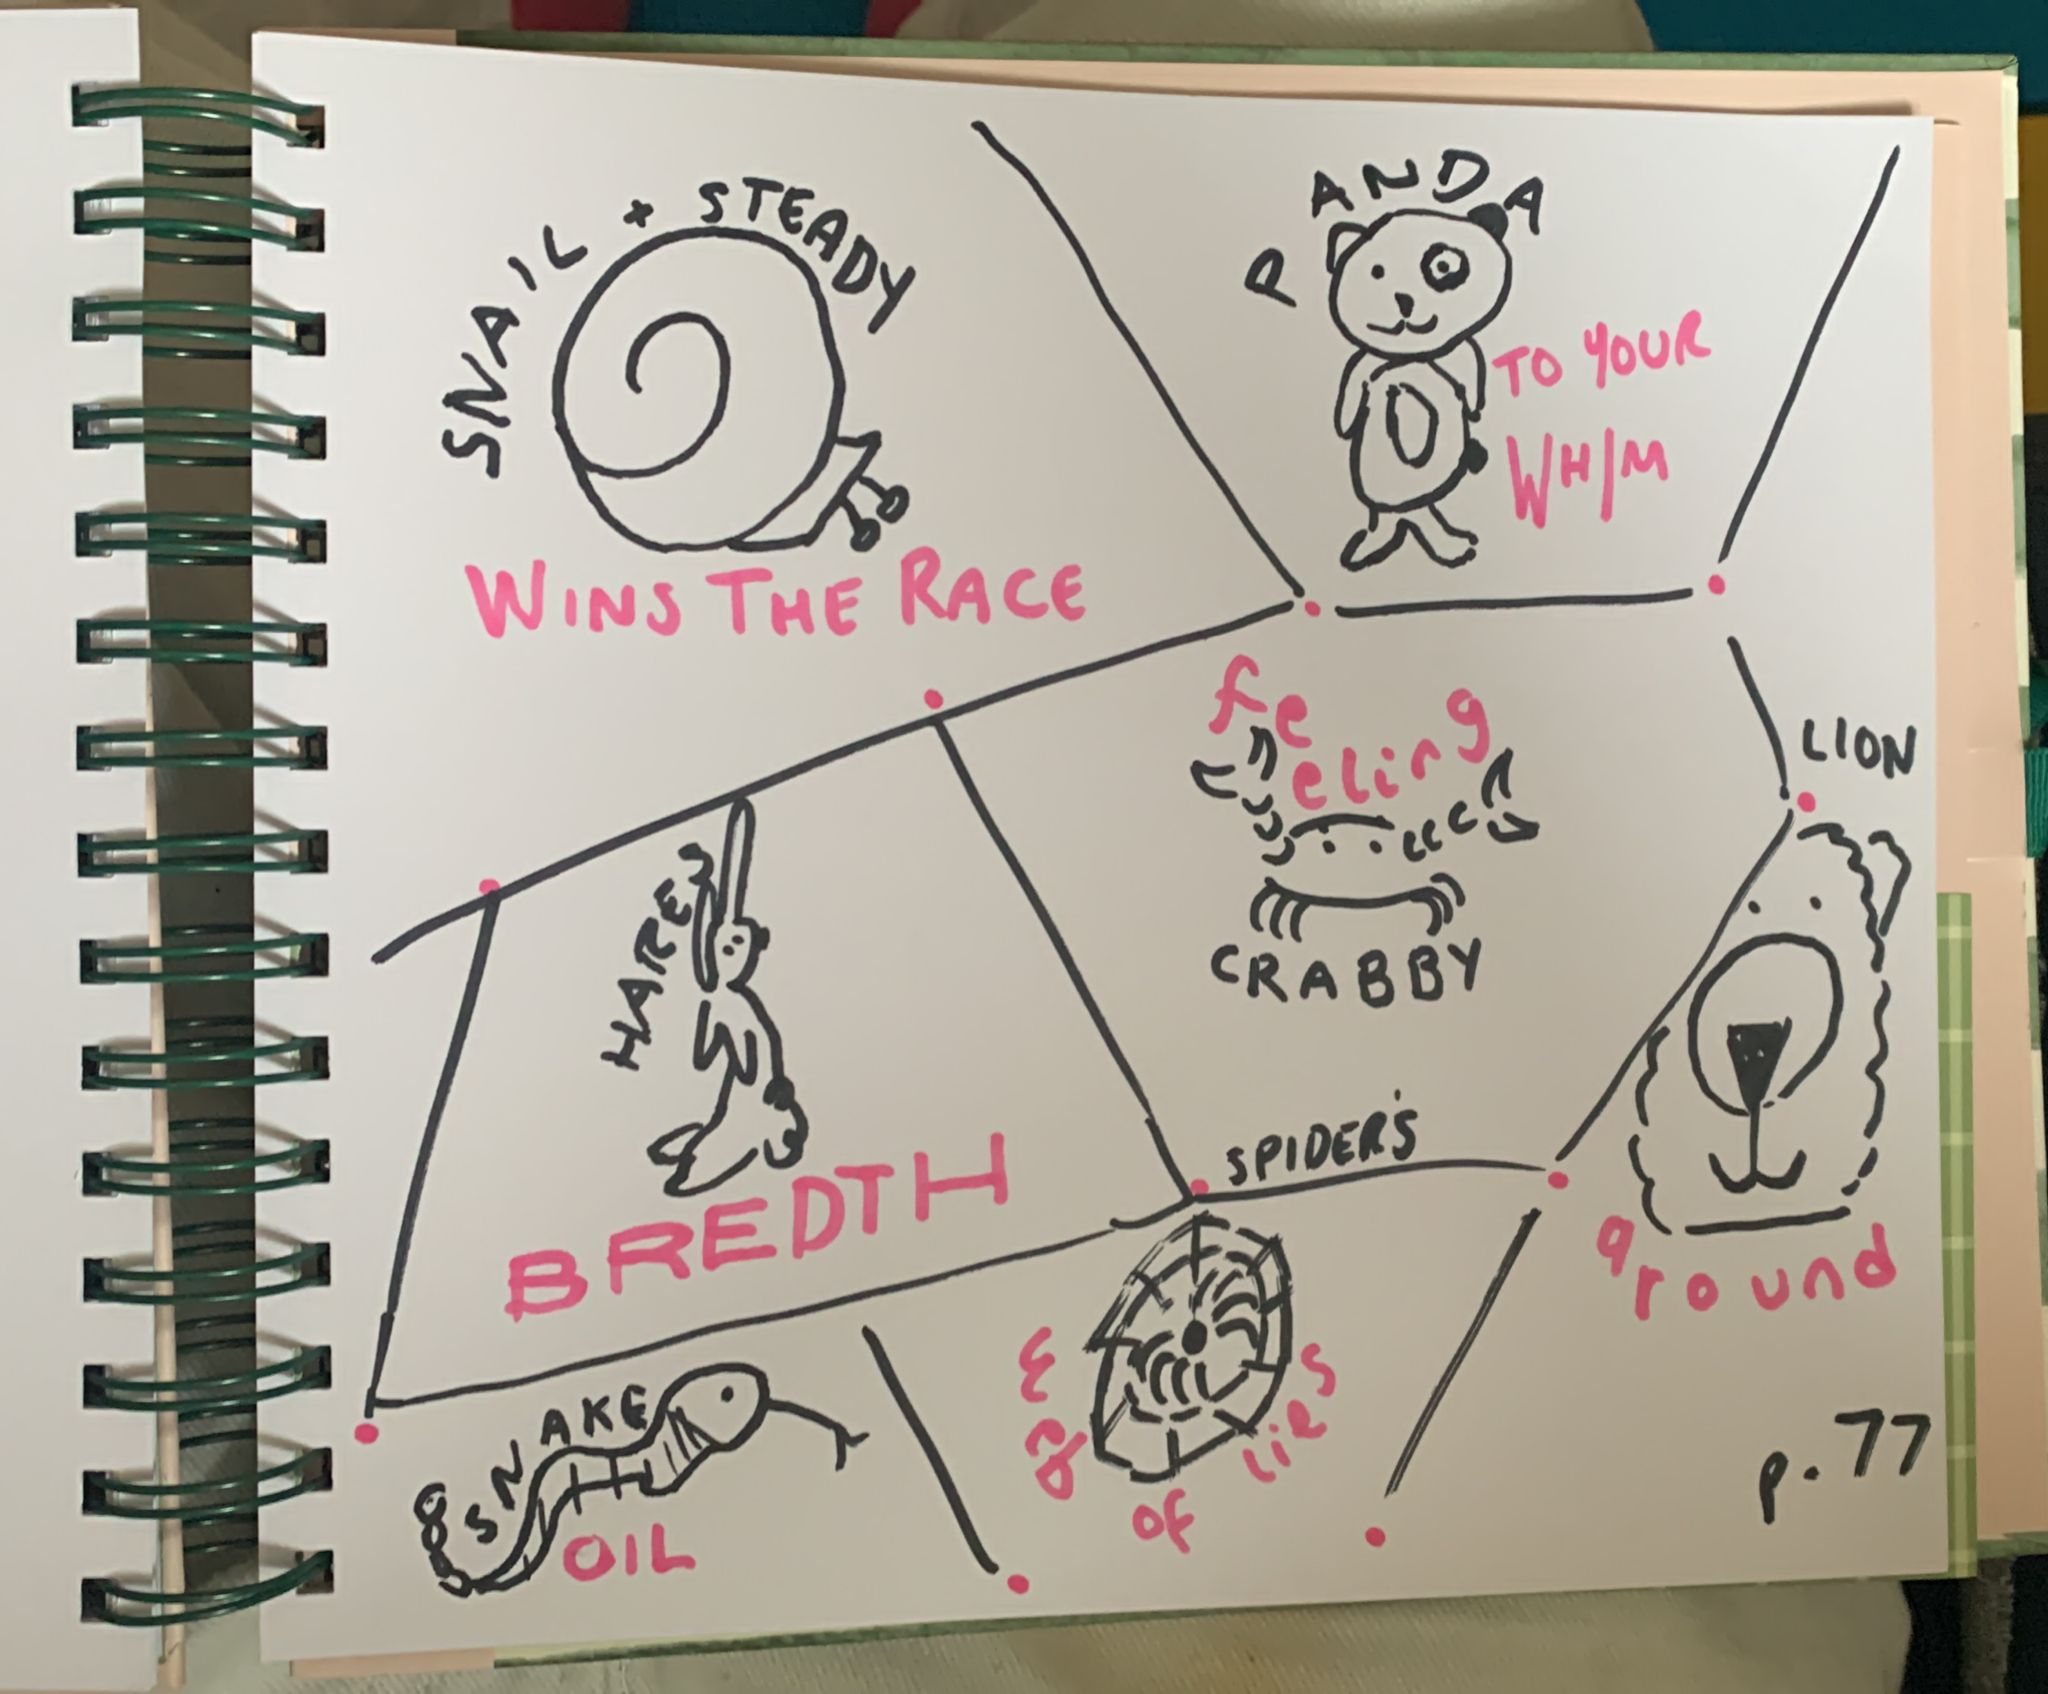 SNAIL + STEADY
WINS THE RACE
PANDA
TO YOUR
WHIM
feeling
CRABBY
LION
around
HARES
BREDTH
SPIDER'S
of lies
SNAKE
OIL
p. 77